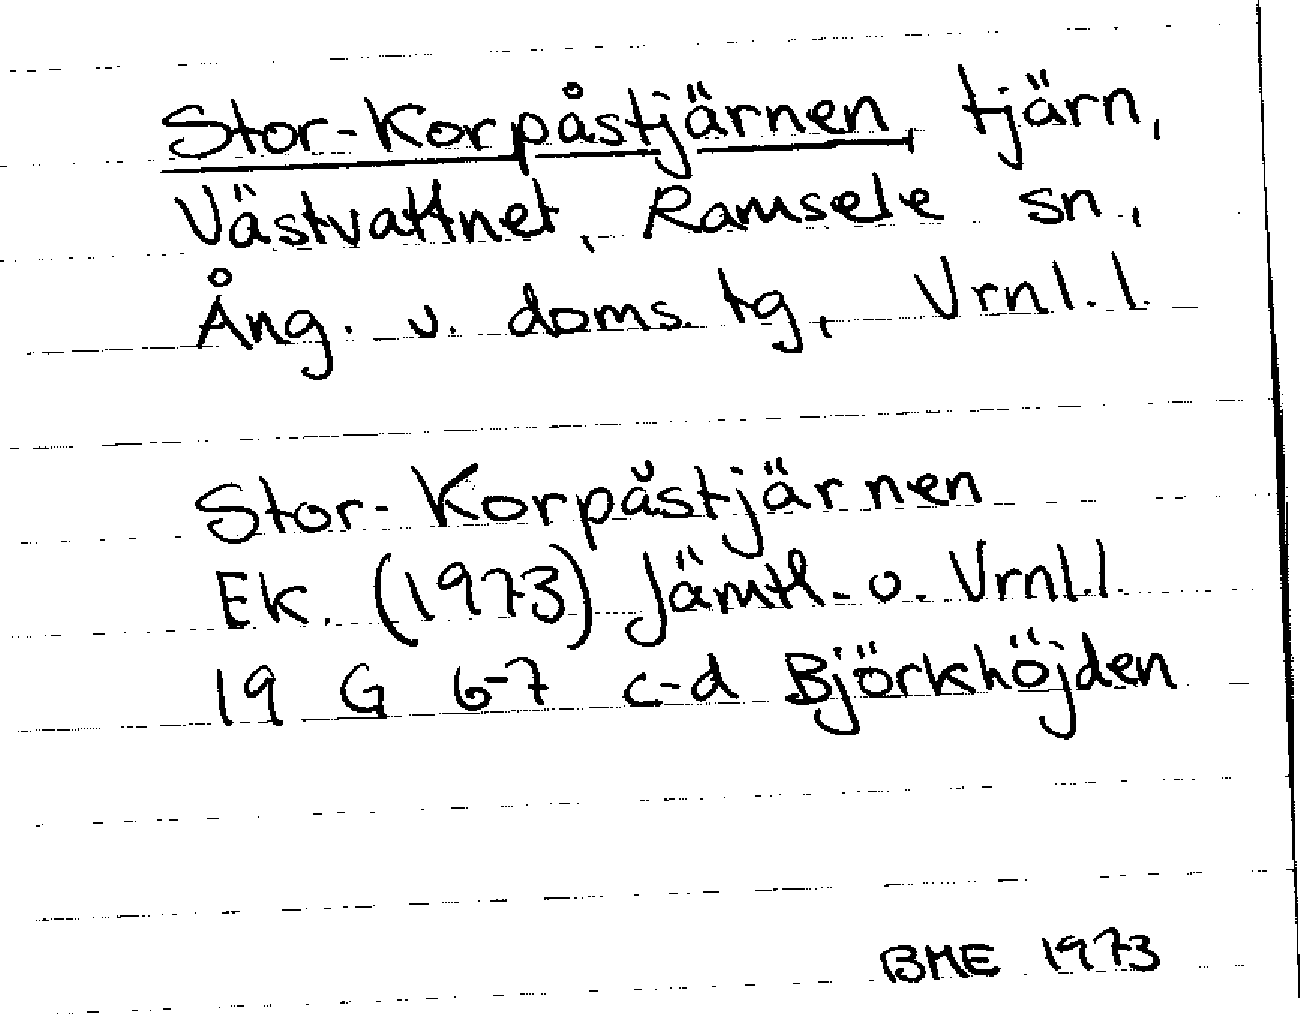 Stor-Korpåstjärnen, tjärn,
Västvattnet, Ramsele sn.,
Ång. v. doms. tg, Vrnl. l.
Stor-Korpåstjärnen
Ek. (1973) Jämtl. o. Vrnl. l.
19 G 6-7 c-d Björkhöjden
BME 1973